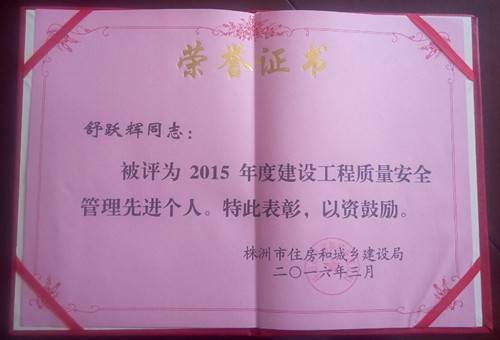 荣誉证书
舒跃辉同志：
被评为 2015 年度建设工程质量安全
管理先进个人。特此表彰，以资鼓励。
株洲市住房和城乡建设局
二〇一六年三月